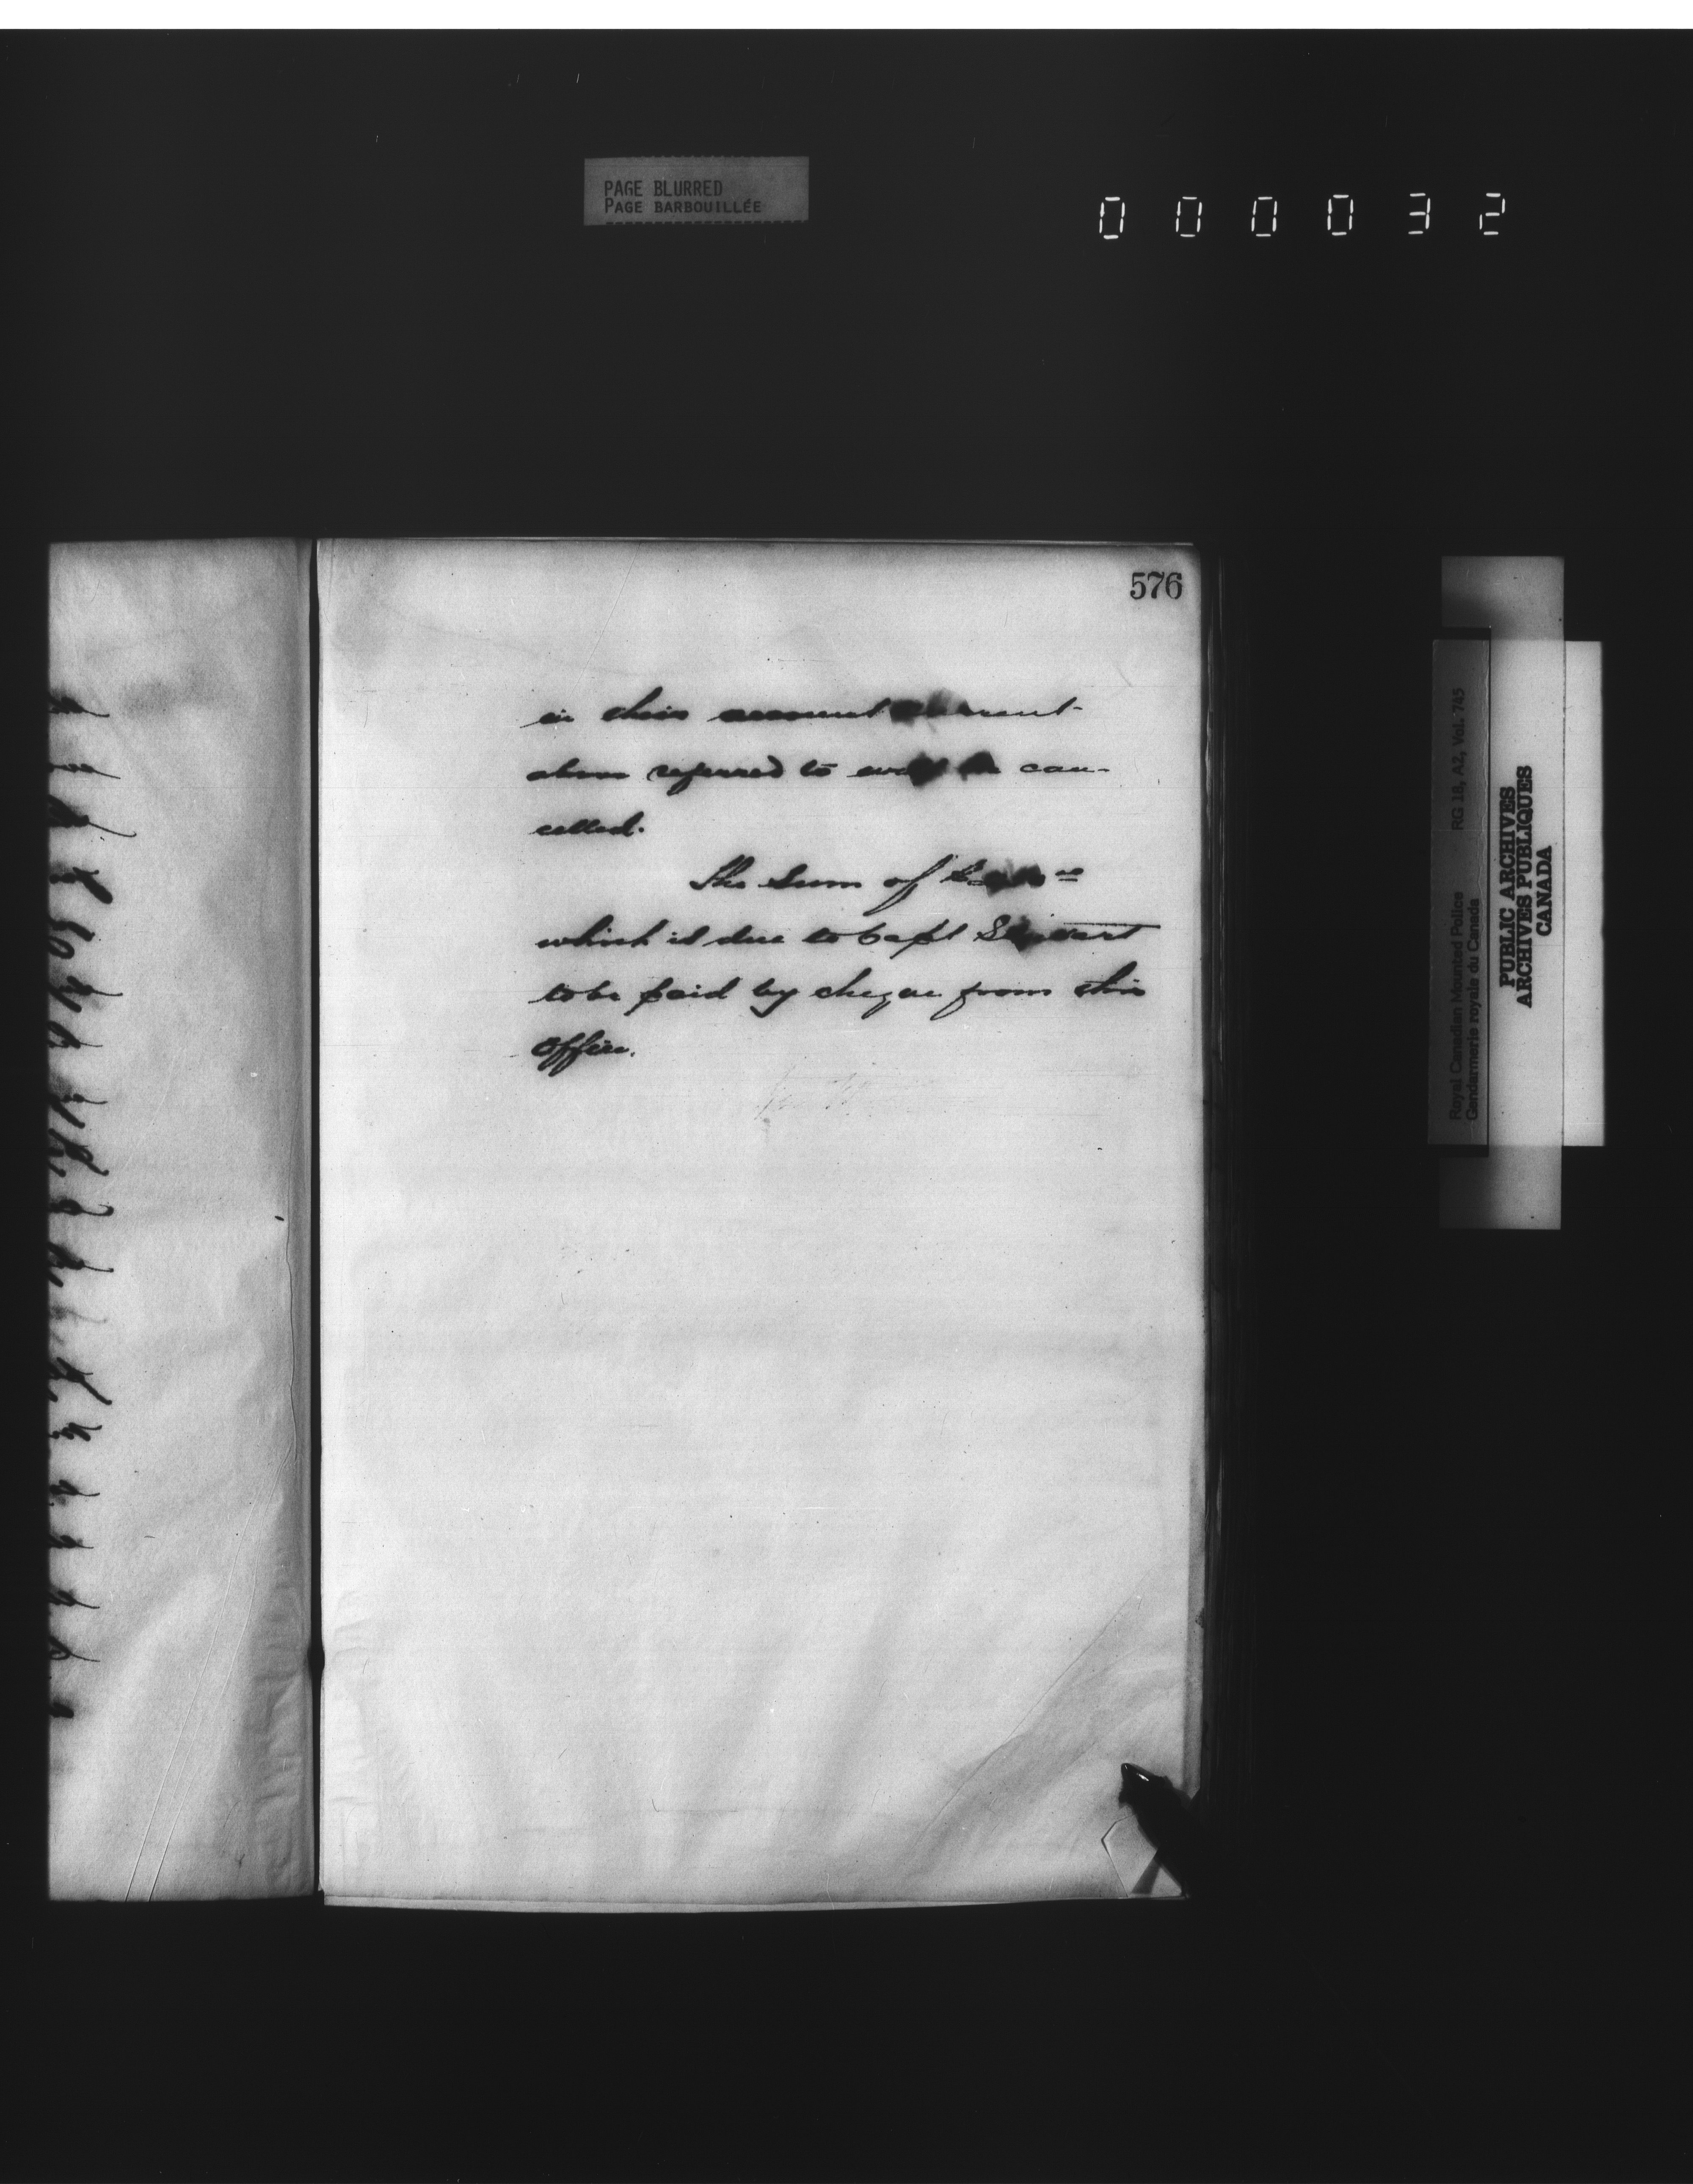 PAGE BLURRED
PAGE BARBOUILLÉE
000032
576
in this account
above referred to can-
celled.
The Sum of
which is due to Capt Stewart
to be paid by cheque from this
Office.
Royal Canadian Mounted Police RG 18, A2, Vol. 745
Gendarmerie royale du Canada
PUBLIC ARCHIVES
ARCHIVES PUBLIQUES
CANADA